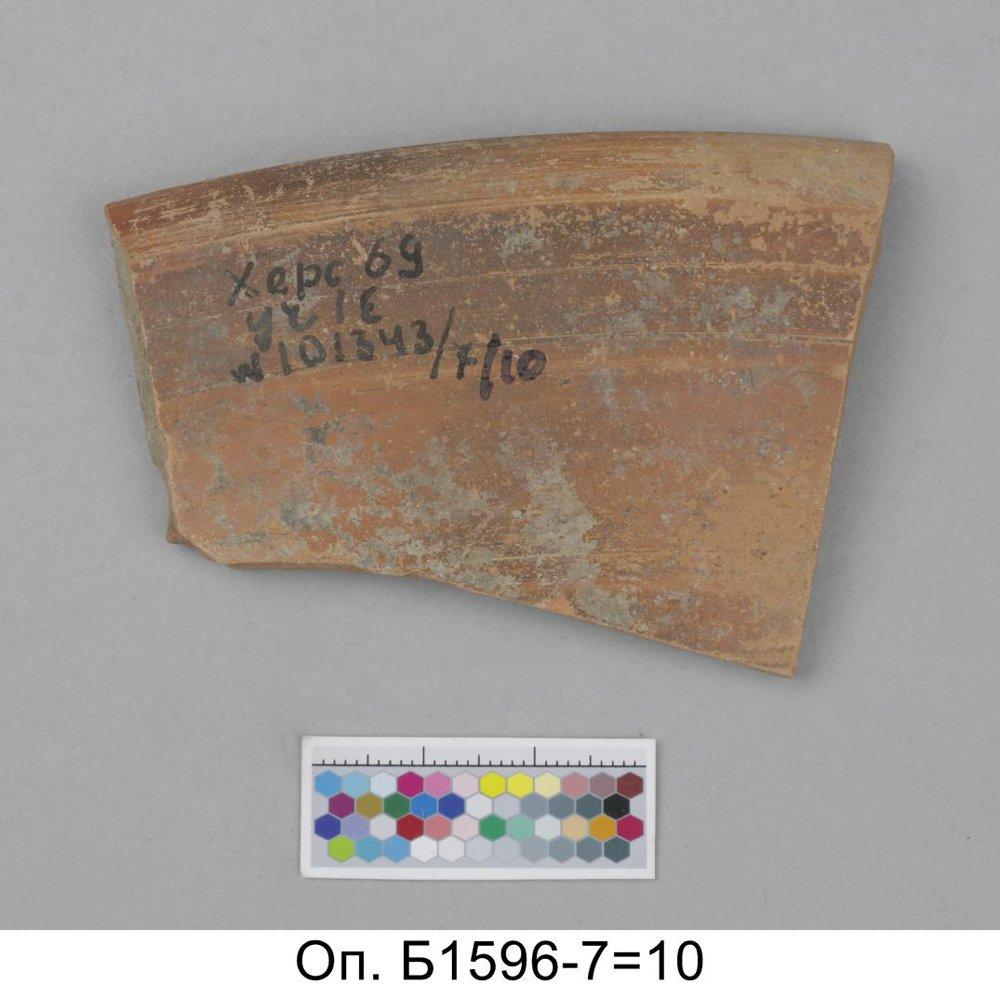 Херс 69
уч 1Е
№101343/7/10
Оп. Б1596-7=10